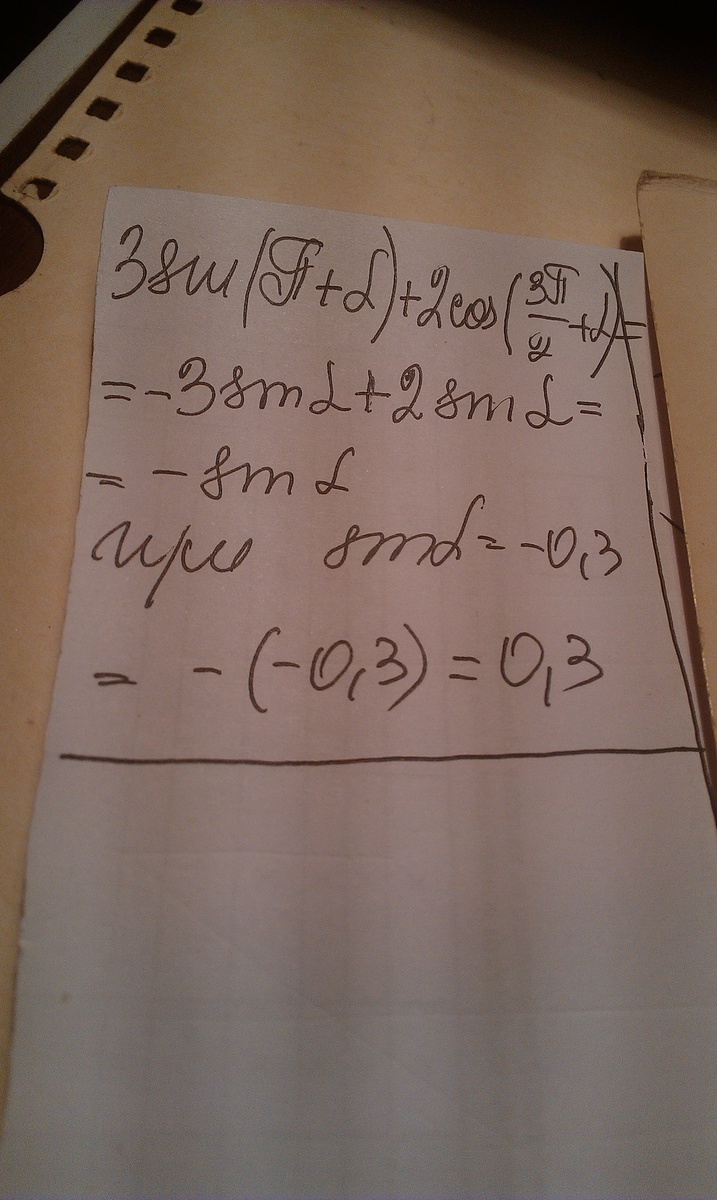 3sin(π+α)+2cos(3π/2+α)=
=-3sinα+2sinα=
= -sinα
при sinα=-0,3
= -(-0,3)=0,3